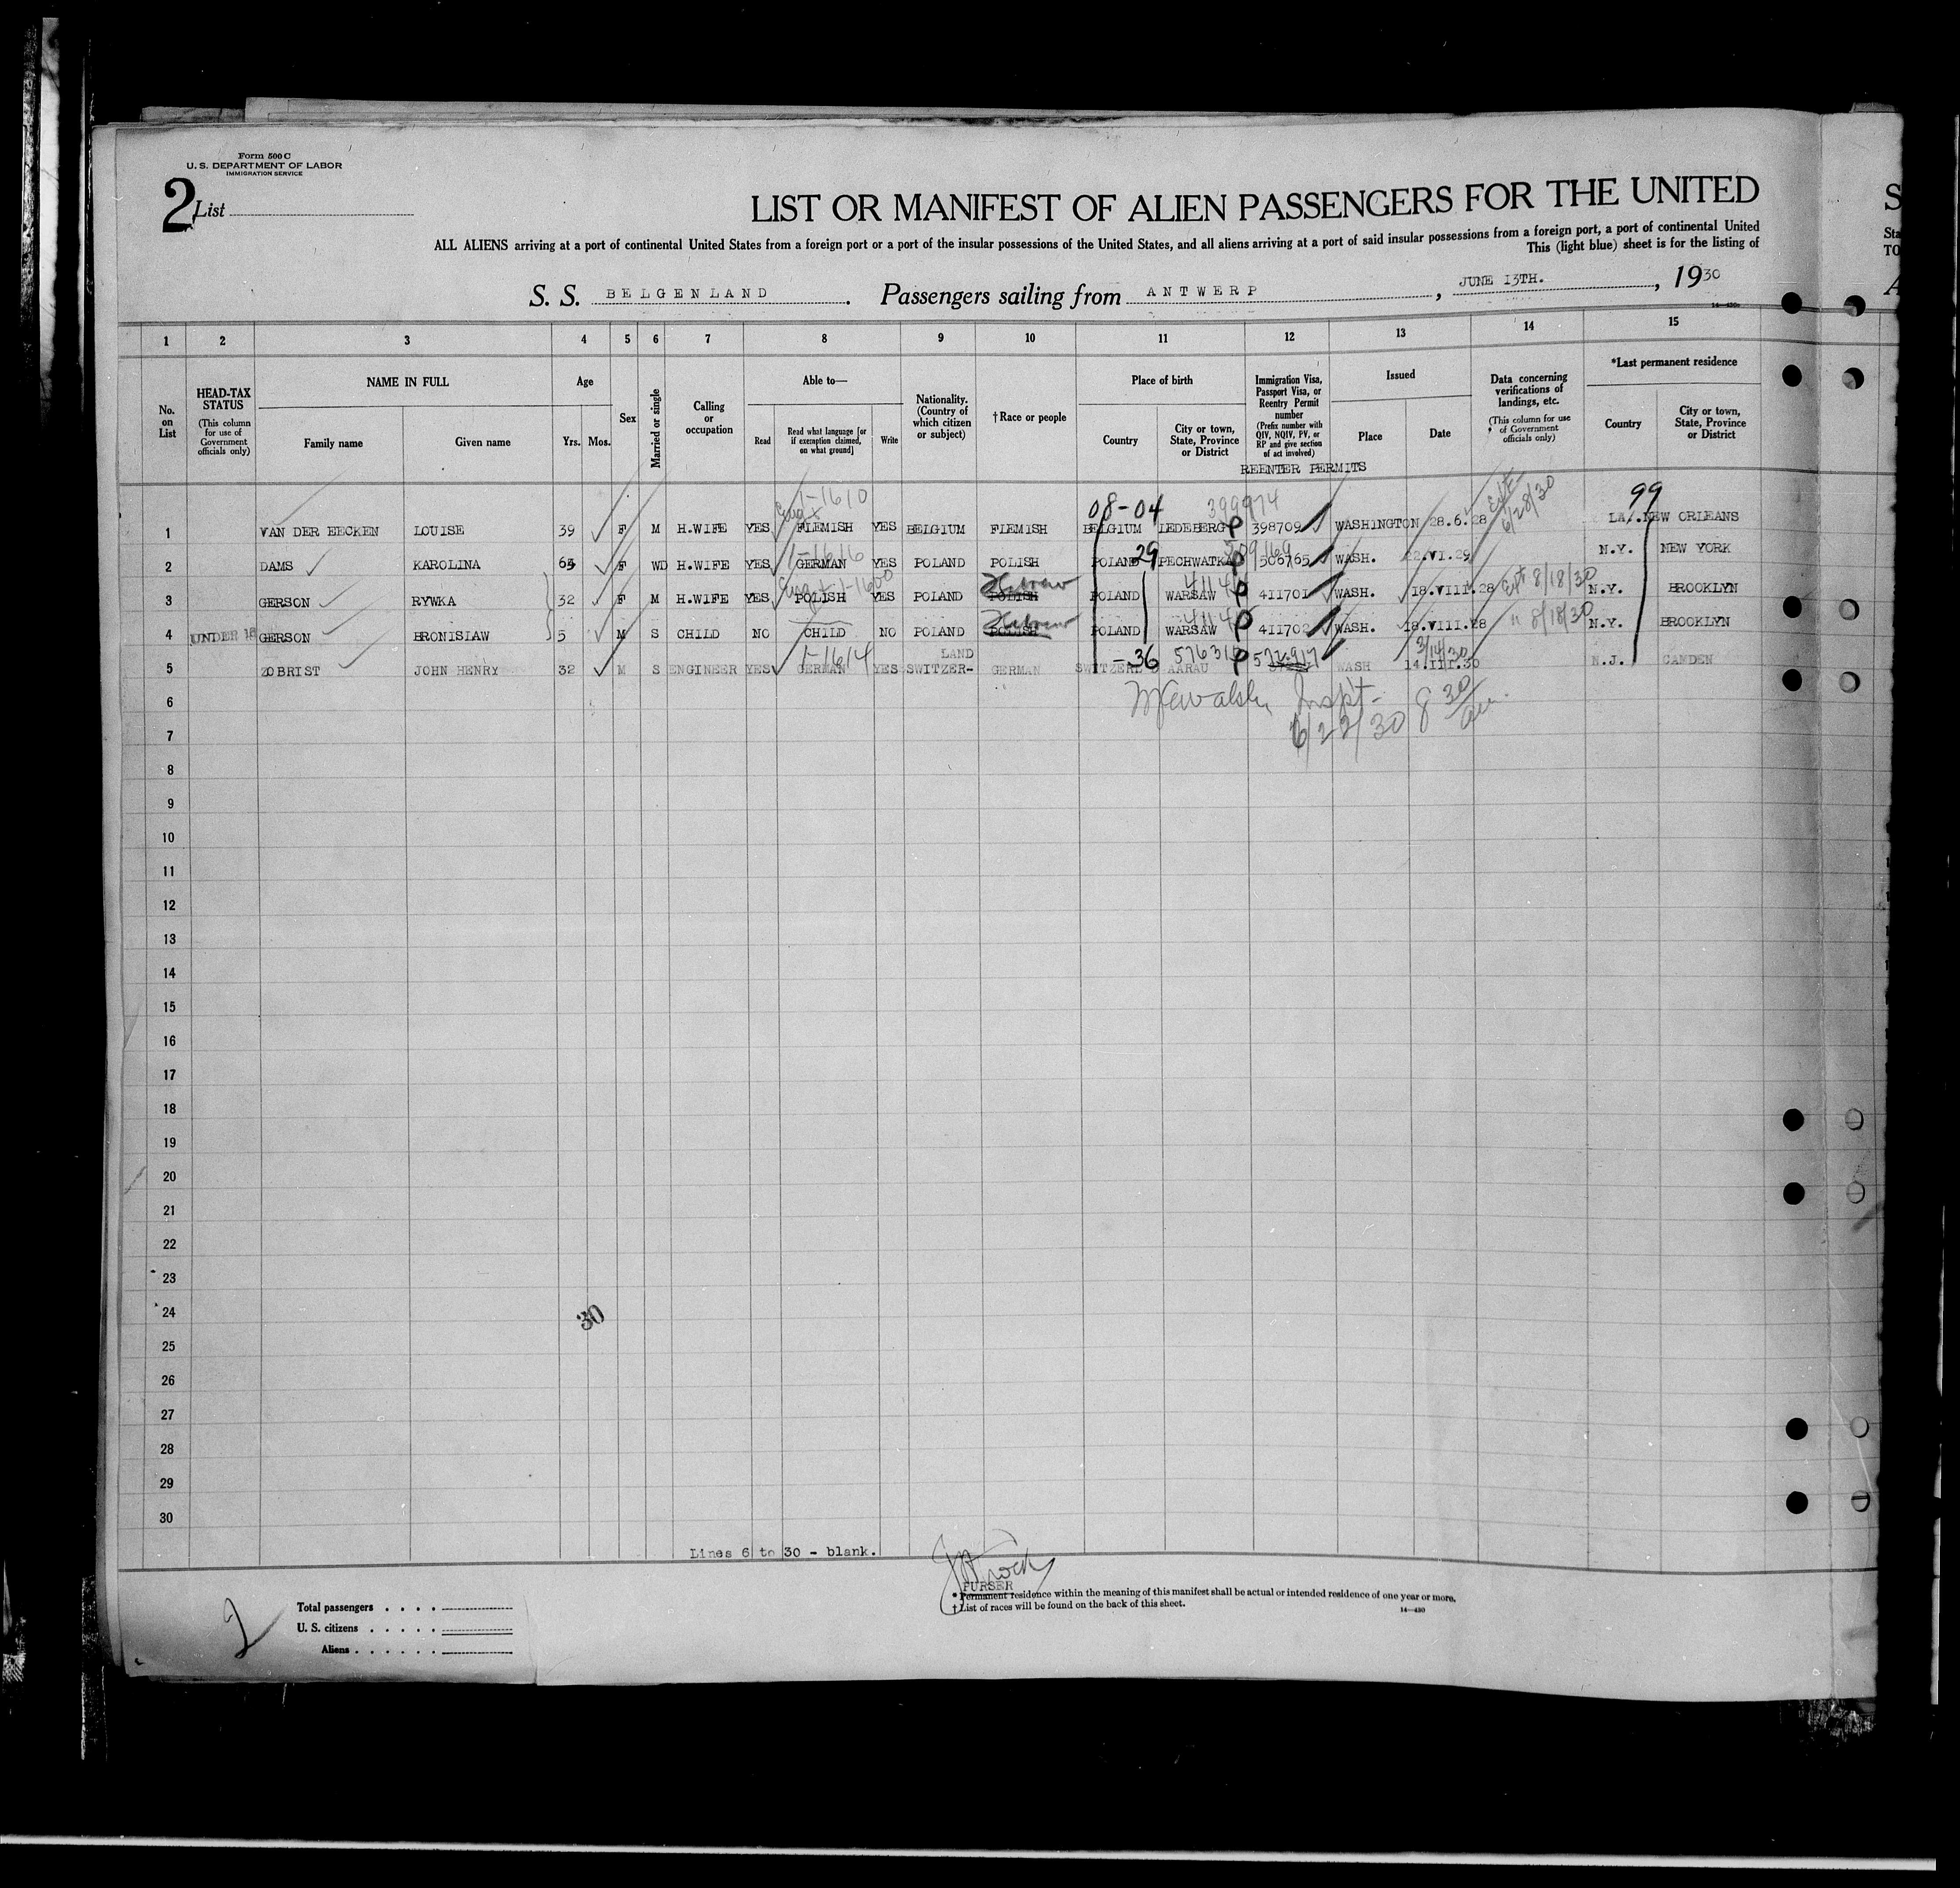 Form 500 C
U. S. DEPARTMENT OF LABOR
IMMIGRATION SERVICE
2 List
LIST OR MANIFEST OF ALIEN PASSENGERS FOR THE UNITED
ALL ALIENS arriving at a port of continental United States from a foreign port or a port of the insular possessions of the United States, and all aliens arriving at a port of said insular possessions from a foreign port, a port of continental United
This (light blue) sheet is for the listing of
S. S. BELGENLAND. Passengers sailing from ANTWERP, JUNE 13TH., 1930
1 2 3 4 5 6 7 8 9 10 11 12 13 14 15
No. on List
HEAD-TAX STATUS
(This column for use of Government officials only)
NAME IN FULL
Family name Given name
Age
Yrs. Mos.
Sex
Married or single
Calling or occupation
Able to—
Read Read what language [or if exemption claimed, on what ground] Write
Nationality. (Country of which citizen or subject)
†Race or people
Place of birth
Country City or town, State, Province or District
Immigration Visa, Passport Visa, or Reentry Permit number
(Prefix number with QIV, NQIV, PV, or RP and give section of act involved)
Issued
Place Date
Data concerning verifications of landings, etc.
(This column for use of Government officials only)
*Last permanent residence
Country City or town, State, Province or District
REENTER PERMITS
1-1610 08-04 399974 6/28/30 99
1 VAN DER EECKEN LOUISE 39 F M H.WIFE YES FLEMISH YES BELGIUM FLEMISH BELGIUM LEDEBERG P 398709 WASHINGTON 28.6.28 LA. NEW ORLEANS
1-1616 29 509169
2 DAMS KAROLINA F WD H.WIFE YES GERMAN YES POLAND POLISH POLAND PECHWATKA P 506765 WASH. 22.VI.29 N.Y. NEW YORK
1-1600 Hebrew
3 GERSON RYWKA 32 F M H.WIFE YES POLISH YES POLAND POLISH POLAND WARSAW P 411701 WASH. 18.VIII.28 Ext 8/18/30 N.Y. BROOKLYN
Hebrew
4 UNDER 16 GERSON BRONISLAW 5 M S CHILD NO CHILD NO POLAND POLISH POLAND WARSAW P 411702 WASH. 18.VIII.28 " 8/18/30 N.Y. BROOKLYN
1-1614 LAND -36 3/14/30
5 ZOBRIST JOHN HENRY 32 M S ENGINEER YES GERMAN YES SWITZER- GERMAN SWITZERL AARAU P WASH 14.III.30 N.J. CAMDEN
6 Inspt.
7 6/22/30 8 30
8
9
10
11
12
13
14
15
16
17
18
19
20
21
22
23
24 30
25
26
27
28
29
30
Lines 6 to 30 - blank.
PURSER
* Permanent residence within the meaning of this manifest shall be actual or intended residence of one year or more.
† List of races will be found on the back of this sheet.
14—430
2
Total passengers
U. S. citizens
Aliens